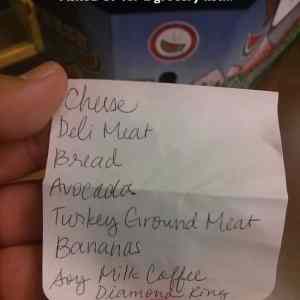 Cheese
Deli Meat
Bread
Avocados
Turkey Ground Meat
Bananas
Soy Milk Coffee
Diamond Ring